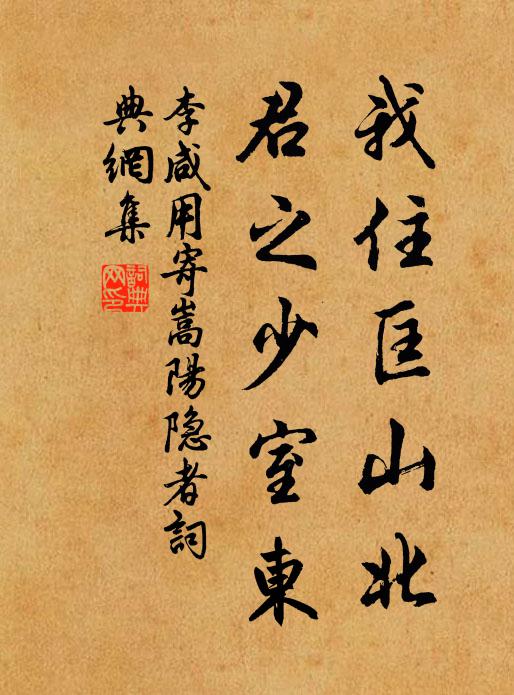 我住匡山北
君之少室東
李咸用寄嵩陽隐者詞
典網集
詞典網印